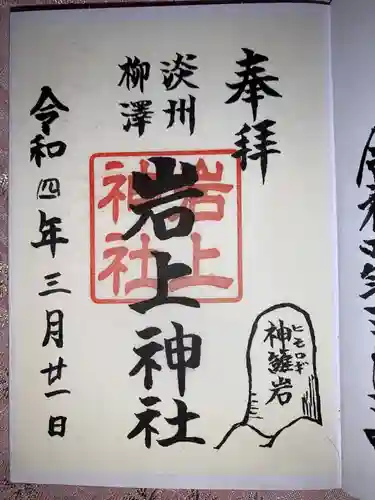 奉拝
淡州
柳澤
岩上神社
岩上
神社
ヒモロギ
神籬岩
令和四年三月廿一日